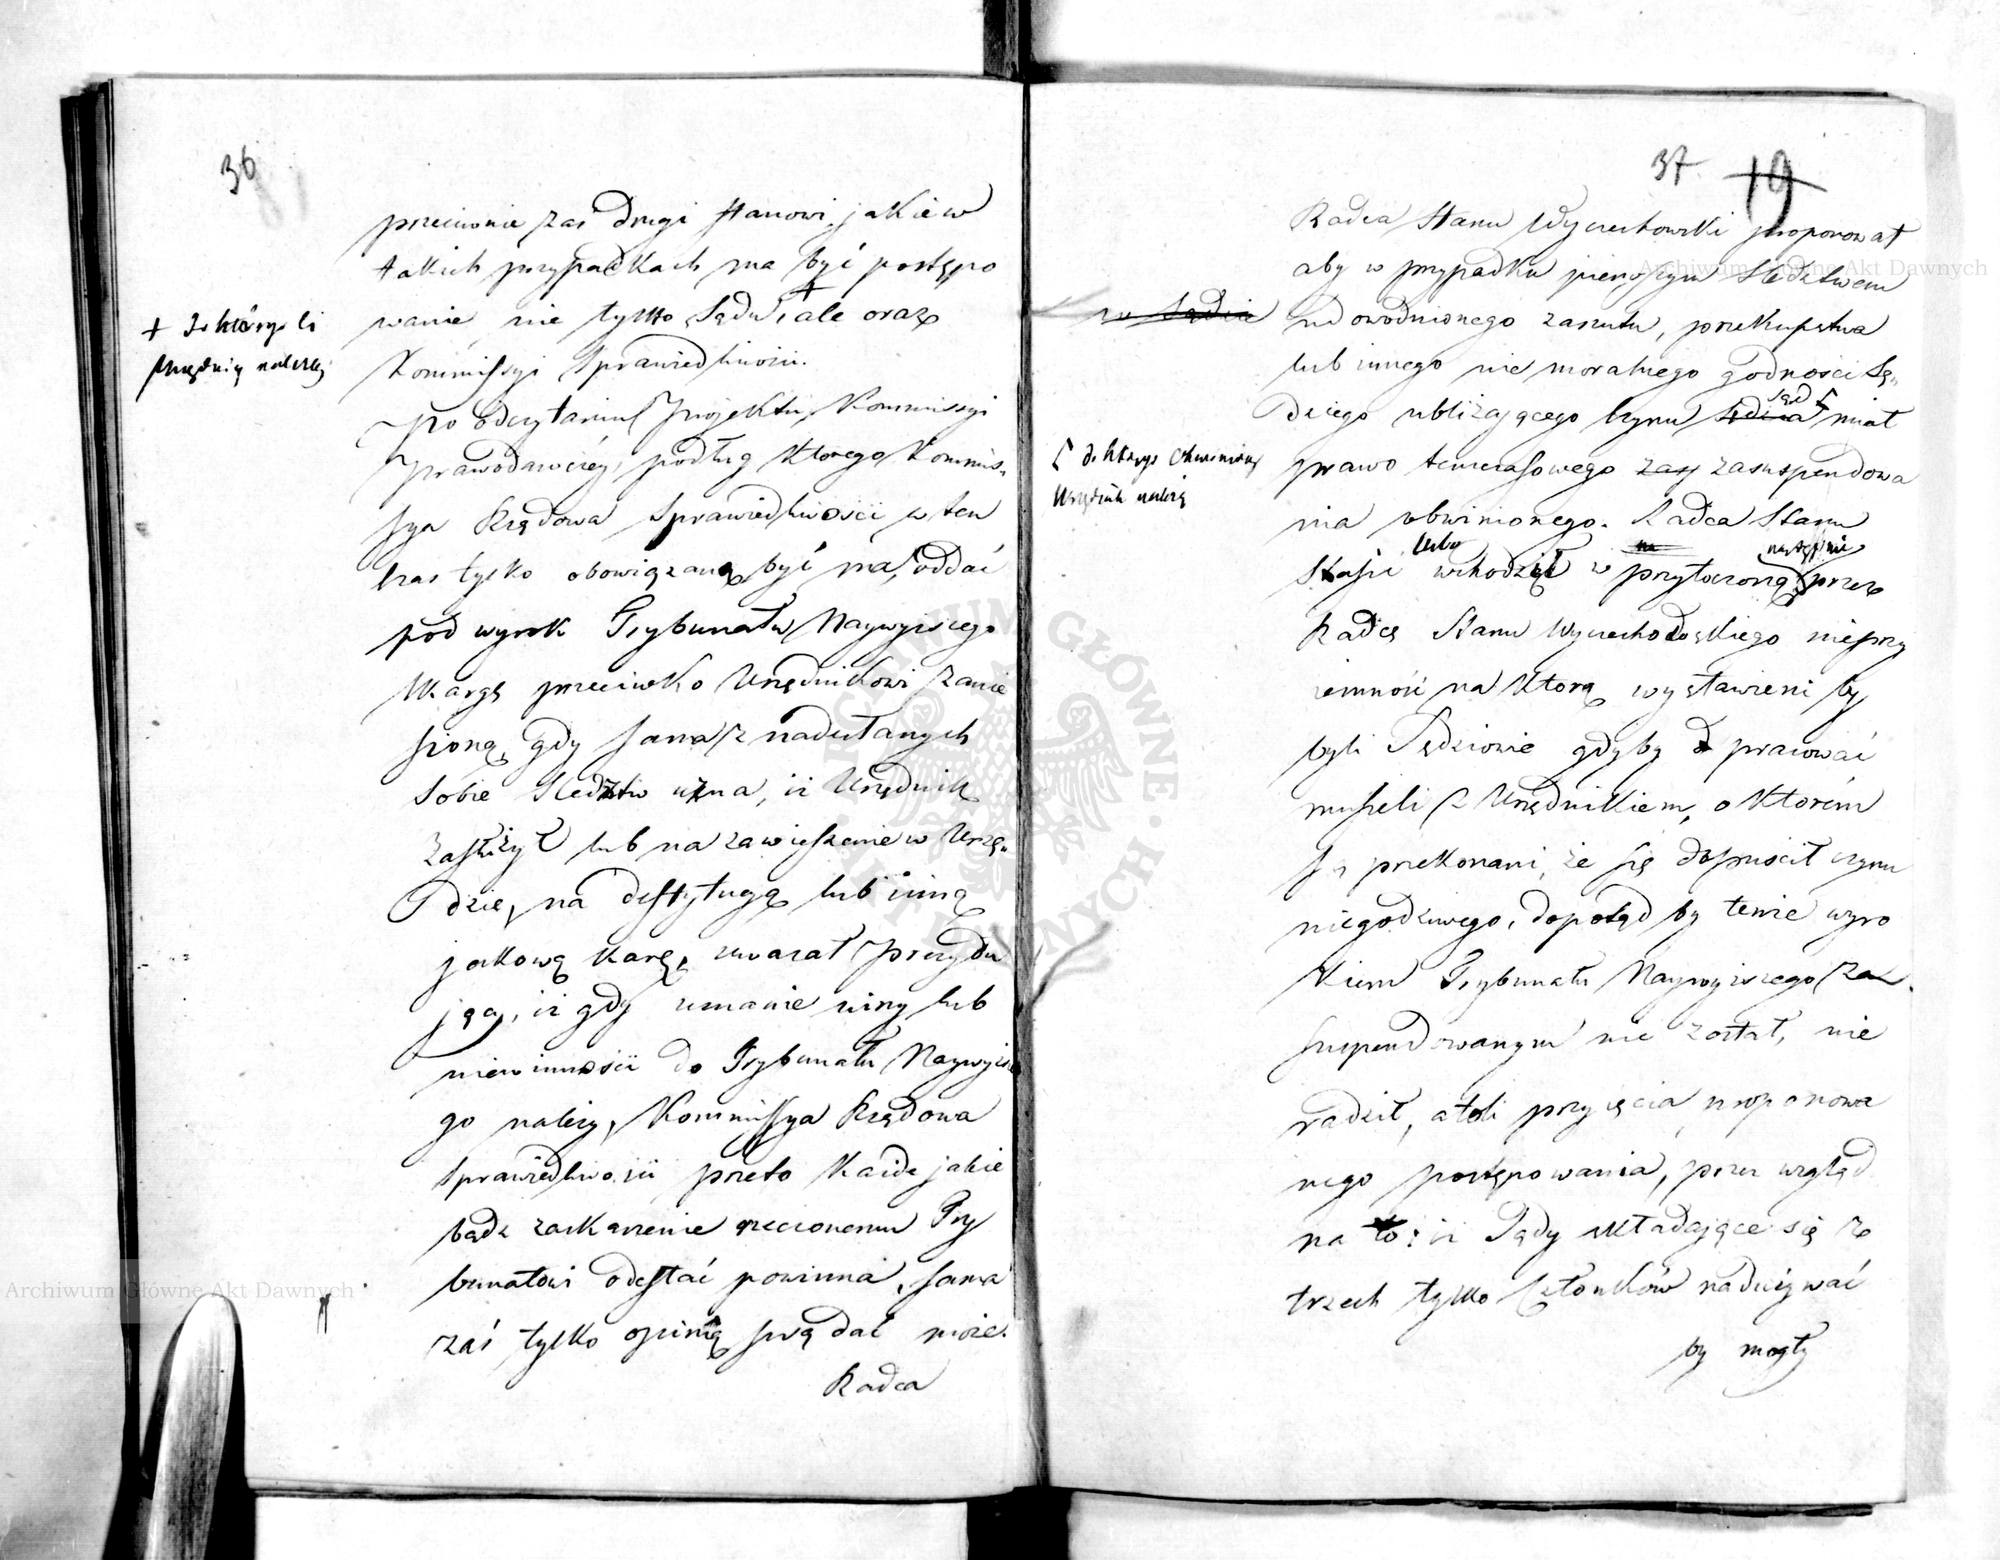 36
przeciwnie zaś drugi stanowi, jakie w
takich przypadkach ma być postępo
wanie nie tylko Sądu, + ale oraz
Kommissyi Sprawiedliwości.
+ do którego ci
Urzędnicy należą
Po odczytaniu Projektu Kommissyi
Prawodawczey, podług którego Kommis-
sya Rządowa Sprawiedliwości w ten
czas tylko obowiązaną być ma, oddać
pod wyrok Trybunału Naywyższego
skargę przeciwko Urzędnikowi zanie
sioną, gdy sama z nadesłanych
sobie śledztw uzna, iż Urzędnik
zasłużył lub na zawieszenie w Urzę„
dzie, na destytucyą lub inną
jakową karę, uważał Prezydu
jący, iż gdy uznanie winy lub
niewinności do Trybunału Naywyższe
go należy, Kommissya Rządowa
Sprawiedliwości przeto każde jakie
bądź zaskarżenie rzeczonemu Try
bunałowi odesłać powinna, sama
zaś tylko opinią swą dać może.
Radca
37. 19
Radca Stanu Wyczechowski proponował
aby w przypadku pierwszym śledztwem
w Sądzie
udowodnionego zarzutu, przekupstwa
lub innego nie moralnego godności Sę„
dziego ubliżającego czynu Sędzia Sąd miał
do którego obwiniony
Urzędnik należy
prawo tymczasowego zas zasuspendowa
nia obwinionego. Radca Stanu
Staszic lubo wchodził w na przytoczoną następnie przez
Radcę Stanu Wyczechowskiego nieprzy
iemność na którą wystawieni by
byli Sędziowie gdyby pracować
musieli z Urzędnikiem, o którém
są przekonani, że się dopuścił czynu
niegodziwego, dopokąd by tenże wyro
kiem Trybunału Naywyższego za
suspendowanym nie został, nie
radził, atoli przyięcia proponowa
nego postępowania, przez wzgląd
na to: iż Sądy składające się z
trzech tylko Członków nadużywać
by mogły
Archiwum Główne Akt Dawnych